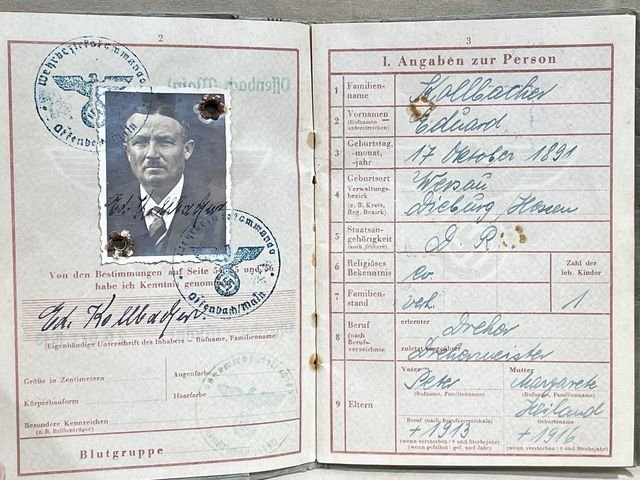 2
Wehrbezirkskommando
Offenbach/Main
Offenbach (Main)
Ed. Kollbacher
Wehrbezirkskommando
Offenbach/Main
Von den Bestimmungen auf Seite und
habe ich Kenntnis genommen
Ed. Kollbacher
(Eigenhändige Unterschrift des Inhabers – Rufname, Familienname)
Größe in Zentimetern
Augenfarbe
Körperbauform
Haarfarbe
Besondere Kennzeichen
(z.B. Brillenträger)
Blutgruppe
3
I. Angaben zur Person
1 Familien-
name
Kollbacher
2 Vornamen
(Rufnamen
unterstreichen)
Eduard
3 Geburtstag,
-monat,
-jahr
17. Oktober 1891
4 Geburtsort
Verwaltungs-
bezirk
(z. B. Kreis,
Reg. Bezirk)
Wersau
Dieburg, Hessen
5 Staatsan-
gehörigkeit
(auch frühere)
D. R.
6 Religiöses
Bekenntnis
ev.
Zahl der
leb. Kinder
7 Familien-
stand
verh.
1
8 Beruf
(nach
Berufs-
verzeichnis)
erlernter
Dreher
zuletzt ausgeübter
Drehermeister
9 Eltern
Vater
Peter
(Rufname, Familienname)
Mutter
Margarete
(Rufname, Familienname)
Heiland
Beruf (nach Berufsverzeichnis)
Geburtsname
+ 1913
+ 1916
(wenn verstorben: + und Sterbejahr)
(wenn gefallen: gef. und Jahr)
(wenn verstorben: + und Sterbejahr)